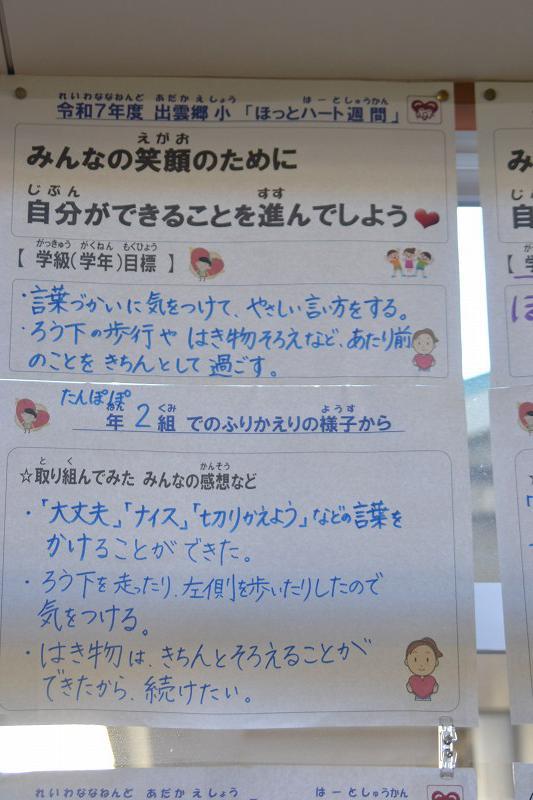 れいわななねんど あだかえしょう はーとしゅうかん
令和7年度 出雲郷小「ほっとハート週間」
えがお
みんなの笑顔のために
じぶん すす
自分ができることを進んでしよう
がっきゅう がくねん もくひょう
【 学級(学年)目標 】
・言葉づかいに気をつけて、やさしい言い方をする。
・ろう下の歩行や はき物そろえなど、あたり前
のことを きちんとして 過ごす。
たんぽぽ
ねん くみ ようす
年 2 組 でのふりかえりの様子から
と く かんそう
☆取り組んでみた みんなの感想など
・「大丈夫」「ナイス」「切りかえよう」などの言葉を
かけることができた。
・ろう下を走ったり、左側を歩いたりしたので
気をつける。
・はき物は、きちんとそろえることが
できたから、続けたい。
れいわななねんど あだかえしょう はーとしゅうかん